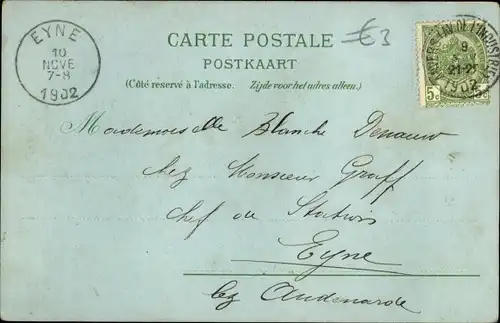 EYNE
10
NOVE
7-8
1902
CARTE POSTALE
€3
POSTKAART
(Côté réservé à l'adresse. Zijde voor het adres alleen.)
9
21-2
1902
5c 5c
Mademoiselle Blanche Denauw
chez Monsieur Graff
chef de Station
Eyne
lez Audenarde